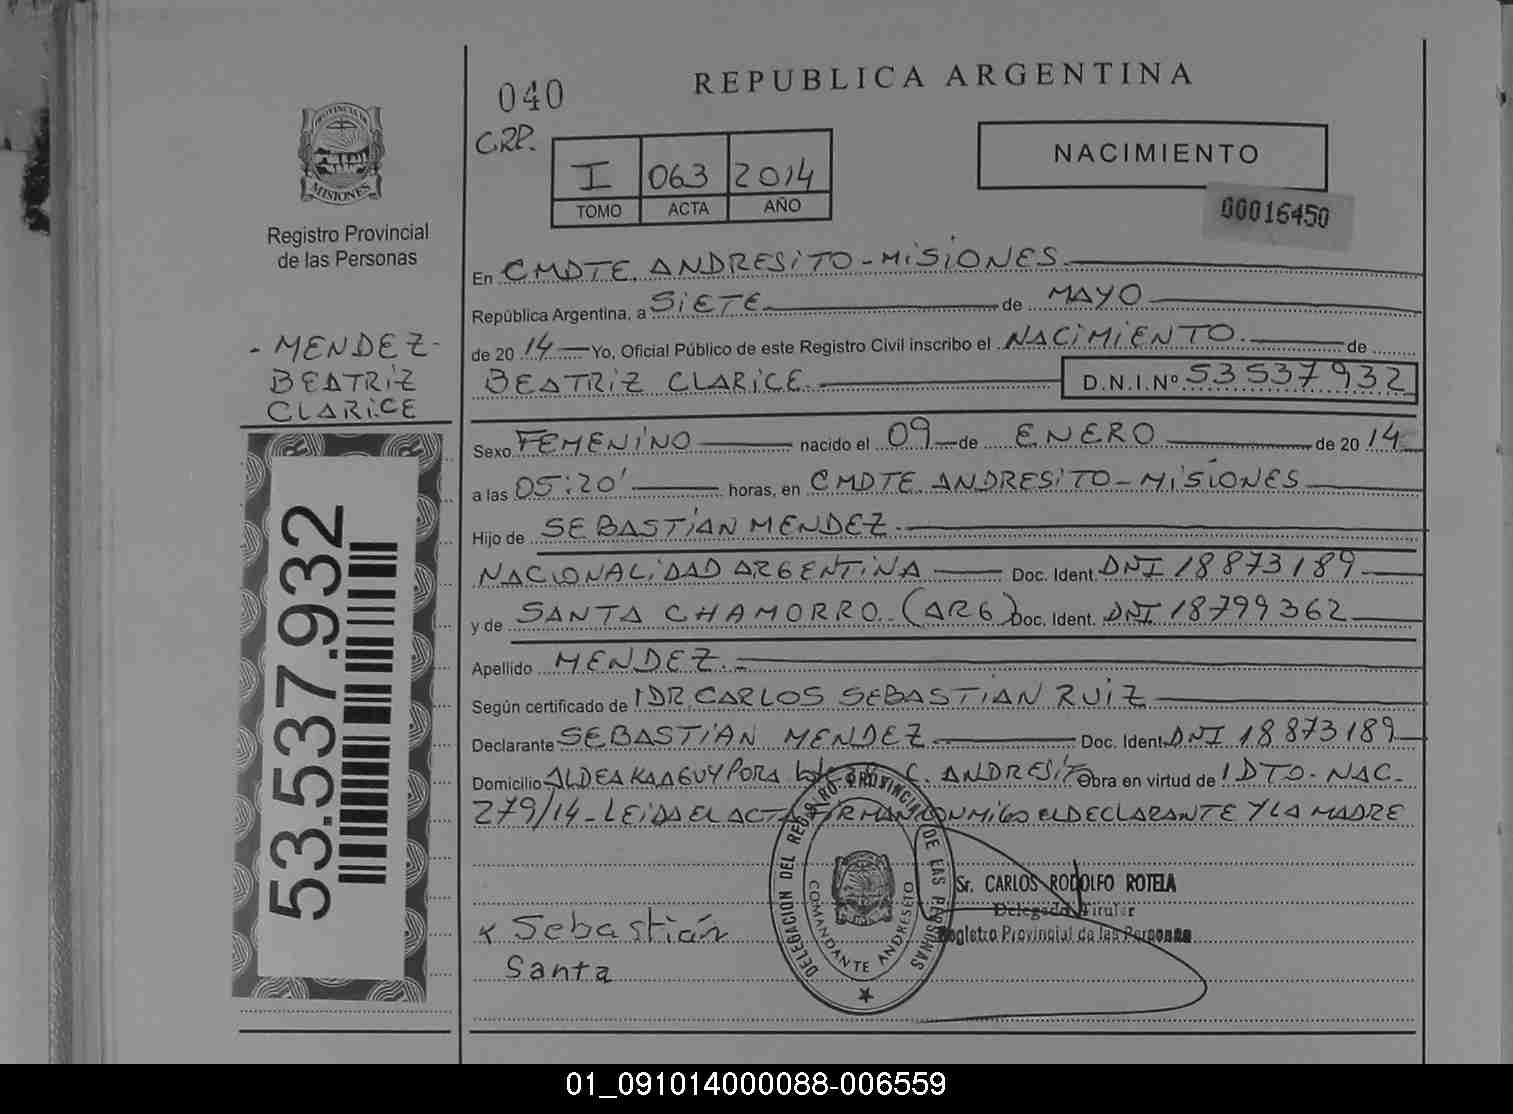 040
REPUBLICA ARGENTINA
CRP.
I 063 2014
TOMO ACTA AÑO
NACIMIENTO
00016450
PROVINCIA DE
MISIONES
Registro Provincial
de las Personas
- MENDEZ -
BEATRIZ
CLARICE
53.537.932
En CMDTE. ANDRESITO - MISIONES
República Argentina, a SIETE de MAYO
de 20 14 Yo, Oficial Público de este Registro Civil inscribo el NACIMIENTO. de
BEATRIZ CLARICE. D.N.I.Nº 53537932
Sexo FEMENINO nacido el 09 de ENERO de 20 14
a las 05:20' horas, en CMDTE. ANDRESITO - MISIONES
Hijo de SEBASTIAN MENDEZ.
NACIONALIDAD ARGENTINA Doc. Ident. DNI 18873189
y de SANTA CHAMORRO. (ARG) Doc. Ident. DNI 18799362
Apellido MENDEZ.
Según certificado de DR CARLOS SEBASTIAN RUIZ
Declarante SEBASTIAN MENDEZ. Doc. Ident. DNI 18873189
Domicilio ALDEA KAAGUY PORA C. ANDRESITO Obra en virtud de DTO. NAC.
279/14 - LEIDA EL ACTA FIRMAN CONMIGO EL DECLARANTE Y LA MADRE
DELEGACION DEL REGISTRO PROVINCIAL DE LAS PERSONAS
COMANDANTE ANDRESITO
Sr. CARLOS RODOLFO ROTELA
Delegado Titular
Registro Provincial de las Personas
x Sebastián
Santa
01_091014000088-006559